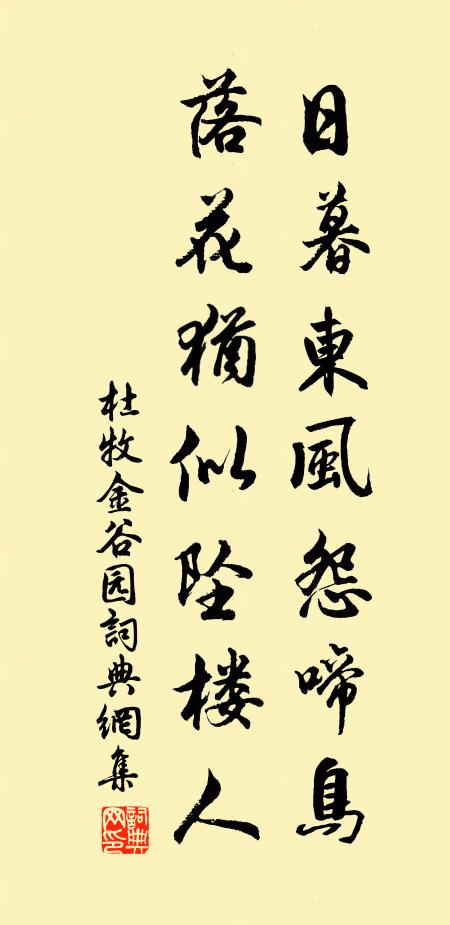 日暮東風怨啼鳥
落花猶似坠楼人
杜牧金谷园詞典網集
詞典网印